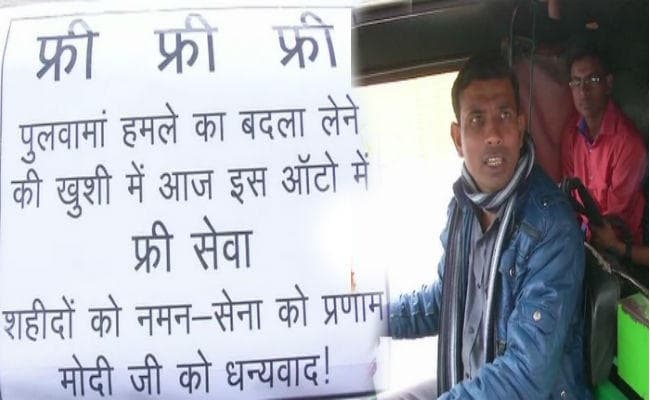 फ्री फ्री फ्री
पुलवामां हमले का बदला लेने
की खुशी में आज इस ऑटो में
फ्री सेवा
शहीदों को नमन–सेना को प्रणाम
मोदी जी को धन्यवाद!